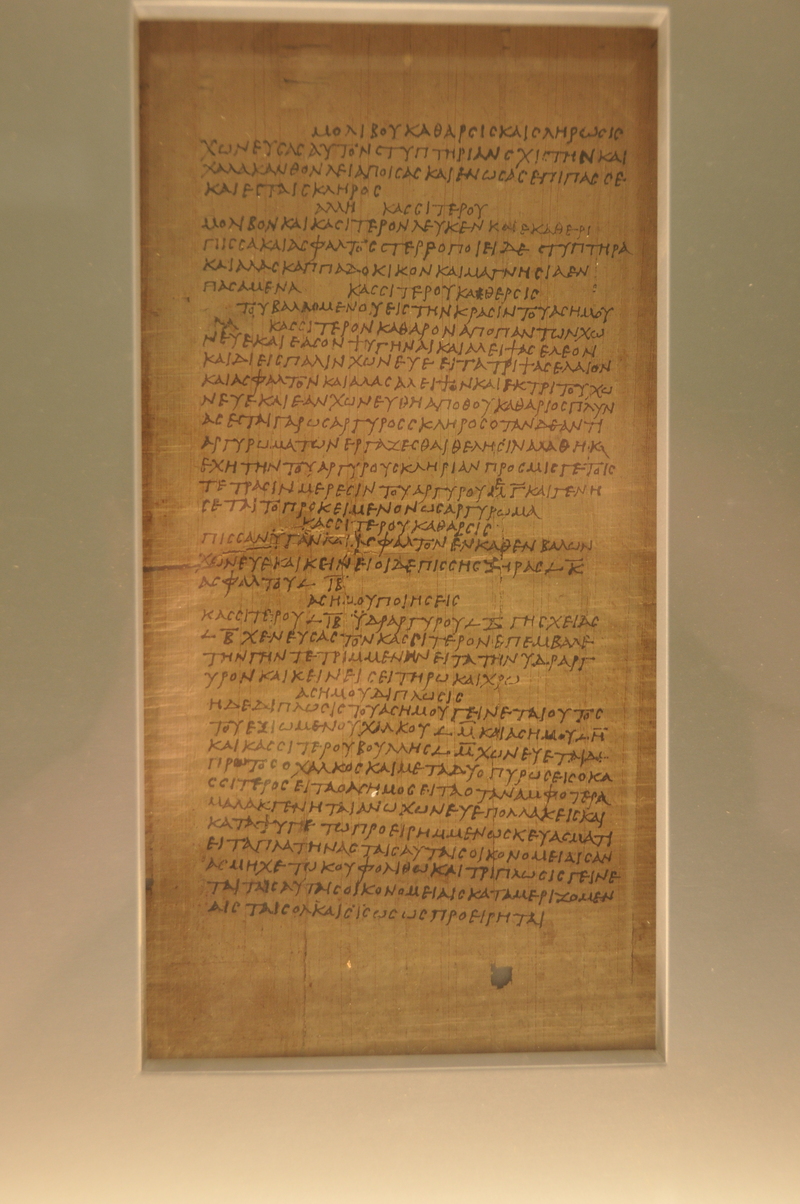 ΜΟΛΙΒΟΥ ΚΑΘΑΡCΙC ΚΑΙ CΚΛΗΡΩCΙC
ΧΩΝΕΥCΑC ΑΥΤΟΝ CΤΥΠΤΗΡΙΑΝ CΧΙCΤΗΝ ΚΑΙ
ΧΑΛΑΚΑΝΘΟΝ ΛΕΙΑ ΠΟΙCΑC ΚΑΙ ΕΝΩCΑC ΕΠΙΠΑCCΕ
ΚΑΙ ΕCΤΑΙ CΚΛΗΡΟC
ΑΛΛΗ ΚΑCCΙΤΕΡΟΥ
ΜΟΛΙΒΟΝ ΚΑΙ ΚΑCΙΤΕΡΟΝ ΛΕΥΚΕΝ
ΠΙCCΑ ΚΑΙ ΑCΦΑΛΤΟC CΤΕΡΡΟΠΟΙΕΙ ΔΕ CΤΥΠΤΗΡΑ
ΚΑΙ ΑΛΑC ΚΑΠΠΑΔΟΚΙΚΟΝ ΚΑΙ ΜΑΓΝΗCΙΑ ΕΝ
ΠΑCΑΜΕΝΑ ΚΑCCΙΤΕΡΟΥ ΚΑΘΕΡCΙC
ΤΟΥ ΒΑΛΛΟΜΕΝΟΥ ΕΙC ΤΗΝ ΚΡΑCΙΝ ΤΟΥ ΑCΗΜΟΥ
ΚΑCCΙΤΕΡΟΝ ΚΑΘΑΡΟΝ ΑΠΟ ΠΑΝΤΩΝ ΧΩ
ΝΕΥΕ ΚΑΙ ΕΑCΟΝ ΨΥΓΗΝΑΙ ΚΑΙ ΑΛΕΙΨΑC ΕΛΕΟΝ
ΚΑΙ ΔΙΕΙC ΠΑΛΙΝ ΧΩΝΕΥΕ ΕΙΤΑ ΤΡΙΨΑC ΕΛΑΙΟΝ
ΚΑΙ ΑCΦΑΛΤΟΝ ΚΑΙ ΑΛΑC ΑΛΕΙΨΟΝ ΚΑΙ ΕΚ ΤΡΙΤΟΥ ΧΩ
ΝΕΥΕ ΚΑΙ ΕΑΝ ΧΩΝΕΥΘΗ ΑΠΟΘΟΥ ΚΑΘΑΡΙΟC ΠΛΥΝ
ΑC ΕCΤΑΙ ΓΑΡ ΩC ΑΡΓΥΡΟC CΚΛΗΡΟC ΟΤΑΝ ΔΕ ΑΝΤΙ
ΑΡΓΥΡΩΜΑΤΩΝ ΕΡΓΑΖΕCΘΑΙ ΘΕΛΗC ΙΝΑ ΛΑΘΗ ΚΑΙ
ΕΧΗ ΤΗΝ ΤΟΥ ΑΡΓΥΡΟΥ CΚΛΗΡΙΑΝ ΠΡΟCΜΙCΓΕ ΤΟΙC
ΤΕΤΡΑCΙΝ ΜΕΡΕCΙΝ ΤΟΥ ΑΡΓΥΡΟΥ ΜΕ Γ ΚΑΙ ΓΕΝΗ
CΕΤΑΙ ΤΟ ΠΡΟΚΕΙΜΕΝΟΝ ΩC ΑΡΓΥΡΩΜΑ
ΚΑCCΙΤΕΡΟΥ ΚΑΘΑΡCΙC
ΠΙCCΑΝ ΥΓΑΝ ΚΑΙ ΑCΦΑΛΤΟΝ ΕΝΚΑΘΕΝ ΒΑΛΩΝ
ΧΩΝΕΥΕ ΚΑΙ ΚΕΙΝΕΙ ΟΙΔΕ ΠΙCCΗC ΞΗΡΑC 𐅻 Κ
ΑCΦΑΛΤΟΥ 𐅻 ΙΒ
ΑCΗΜΟΥ ΠΟΙΗCΕΙC
ΚΑCCΙΤΕΡΟΥ 𐅻 ΙΒ ΥΔΡΑΡΓΥΡΟΥ 𐅻 ΓΗC ΧΕΙΑC
𐅻 Β ΧΕΝΕΥCΑC ΤΟΝ ΚΑCCΙΤΕΡΟΝ ΕΠΕΜΒΑΛΕ
ΤΗΝ ΓΗΝ ΤΕΤΡΙΜΜΕΝΗΝ ΕΙΤΑ ΤΗΝ ΥΔΡΑΡΓ
ΥΡΟΝ ΚΑΙ ΚΕΙΝΕΙ CΕΙΤΗΡΩ ΚΑΙ ΧΡΩ
ΑCΗΜΟΥ ΔΙΠΛΩCΙC
Η ΔΕ ΔΙΠΛΩCΙC ΤΟΥ ΑCΗΜΟΥ ΓΕΙΝΕΤΑΙ ΟΥΤΟC
ΤΟΥ ΕΞΙΩΜΕΝΟΥ ΧΑΛΚΟΥ 𐅻 Μ ΚΑΙ ΑCΗΜΟΥ 𐅻 Η
ΚΑΙ ΚΑCCΙΤΕΡΟΥ ΒΟΥΛΛΗC 𐅻 Μ ΧΩΝΕΥΕΤΑΙ ΔΕ
ΠΡΩΤΟC Ο ΧΑΛΚΟC ΚΑΙ ΜΕΤΑ ΔΥΟ ΠΥΡΩCΕΙC Ο ΚΑ
CCΙΤΕΡΟC ΕΙΤΑ Ο ΑCΗΜΟC ΕΙΤΑ ΟΤΑΝ ΑΜΦΟΤΕΡΑ
ΜΑΛΑΚ ΓΕΝΗΤΑΙ ΑΝΩ ΧΩΝΕΥΕ ΠΟΛΛΑΚΕΙC ΚΑΙ
ΚΑΤΑΨΥΓΕ ΤΩ ΠΡΟΕΙΡΗΜΜΕΝΩ CΚΕΥΑCΜΑΤΙ
ΕΙΤΑ ΠΛΑΤΗΝΑC ΤΑΙC ΑΥΤΑΙC ΟΙΚΟΝΟΜΕΙΑΙC ΑΝ
ΑCΜΗΧΕ ΤΩ ΚΟΥΦΟΛΙΘΩ ΚΑΙ ΤΡΙΠΛΩCΙC ΓΕΙΝΕ
ΤΑΙ ΤΑΙC ΑΥΤΑΙC ΟΙΚΟΝΟΜΕΙΑΙC ΚΑΤΑΜΕΡΙΖΟΜΕΝ
ΑΙC ΤΑΙC ΟΛΚΑΙC ΩC ΠΡΟΕΙΡΗΤΑΙ